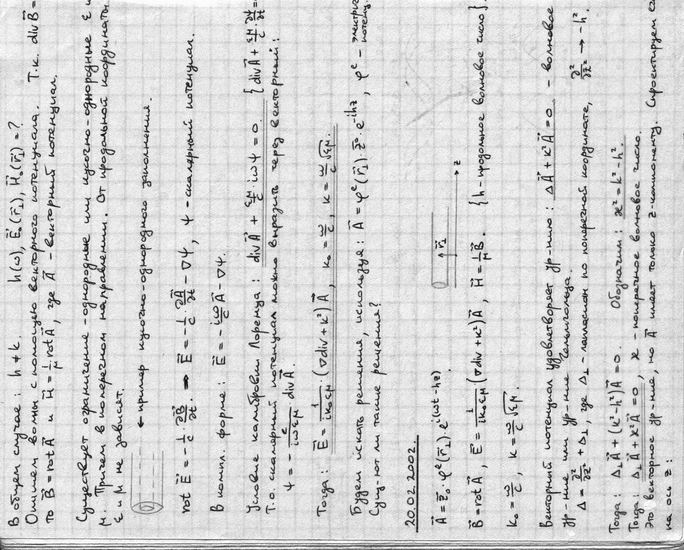 В общем случае: h ≠ k.   h(ω), E⃗₀(r⃗⊥), H⃗₀(r⃗⊥) = ?
Опишем волны с помощью векторного потенциала. Т.к. div B⃗ =
то B⃗ = rot A⃗ и H⃗ = 1/μ rot A⃗, где A⃗ - векторный потенциал.
Существует ограничение - однородные или кусочно-однородные ε и
μ. Причем в поперечном направлении. От продольной координаты
ε и μ не зависят.
← пример кусочно-однородного заполнения.
rot E⃗ = -1/c ∂B⃗/∂t. ⇒ E⃗ = -1/c ∂A⃗/∂t - ∇ψ, ψ - скалярный потенциал.
В компл. форме: E⃗ = -iω/c A⃗ - ∇ψ.
Условие калибровки Лоренца: div A⃗ + εμ/c iωψ = 0. { div A⃗ + εμ/c ∂ψ/∂t =
Т.о. скалярный потенциал можно выразить через векторный:
ψ = - c/(iωεμ) div A⃗.
Тогда: E⃗ = 1/(ik₀εμ) (∇div + k²) A⃗, k₀ = ω/c, k = ω/c √εμ.
Будем искать решения, используя: A⃗ = φᵉ(r⃗⊥) z⃗₀ · e^(-ihz), φᵉ - электрич.
Сущ-ют ли такие решения?
20.02.2002.
A⃗ = z⃗₀ · φᵉ(r⃗⊥) · e^(i(ωt-hz))
r⃗⊥ z
B⃗ = rot A⃗, E⃗ = 1/(ik₀εμ) (∇div + k²) A⃗, H⃗ = 1/μ B⃗. { h - продольное волновое число }.
k₀ = ω/c, k = ω/c √εμ.
Векторный потенциал удовлетворяет ур-нию: ΔA⃗ + k²A⃗ = 0 - волновое
ур-ние или ур-ние Гельмгольца.
Δ = ∂²/∂z² + Δ⊥, где Δ⊥ - лапласиан по поперечной координате, ∂²/∂z² → -h².
Тогда: Δ⊥A⃗ + (k²-h²)A⃗ = 0. Обозначим: ϰ² = k²-h².
Тогда: Δ⊥A⃗ + ϰ²A⃗ = 0, ϰ - поперечное волновое число.
Это векторное ур-ние, но A⃗ имеет только z-компоненту. Спроектируем
на ось z: